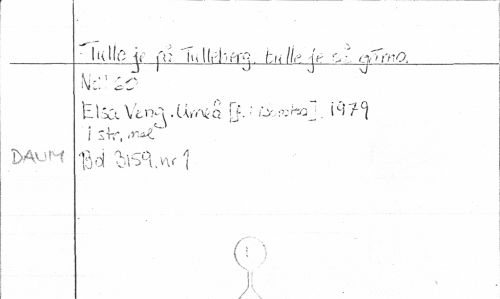 Tulle je på Tulleberg, tulle je så gärna.
Elsa Veng. Umeå 1979
1 str, mel
DAUM Bd 3159, nr 1